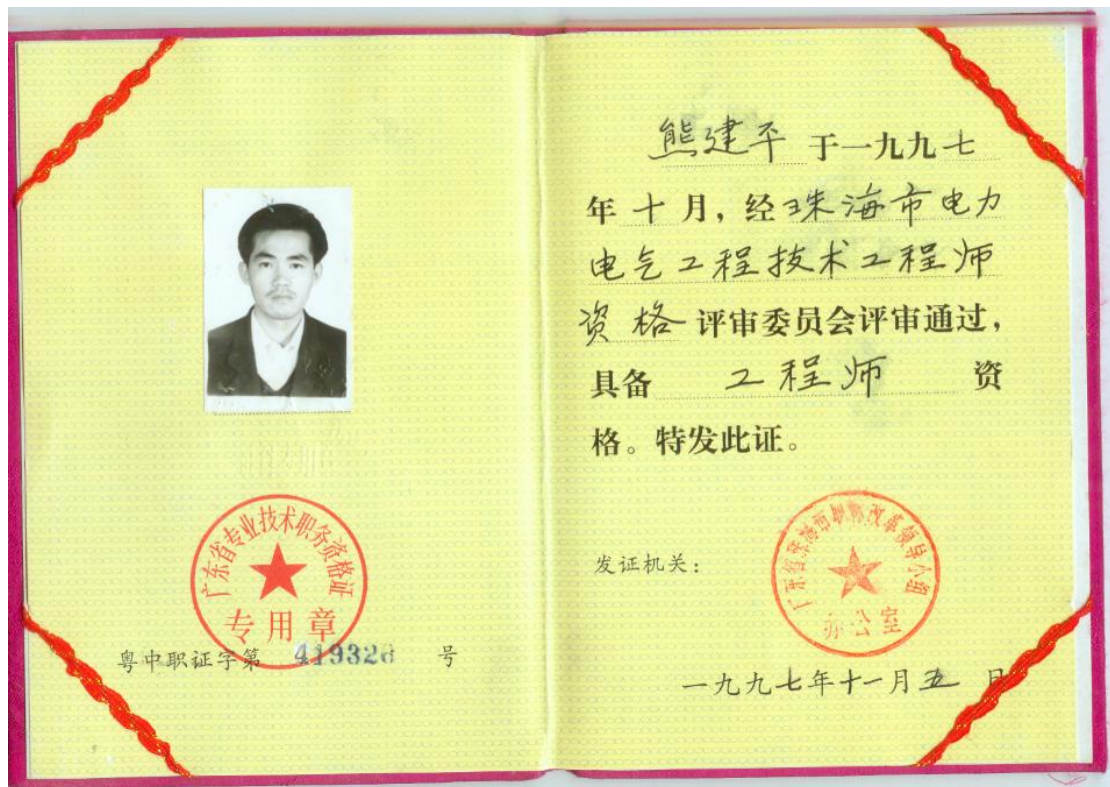 广东省专业技术职务资格证
专用章
粤中职证字第 419326 号
熊建平 于一九九七
年十月，经珠海市电力
电气工程技术工程师
资格 评审委员会评审通过，
具备 工程师 资
格。特发此证。
广东省珠海市职称改革领导小组
办公室
发证机关：
一九九七年十一月五日